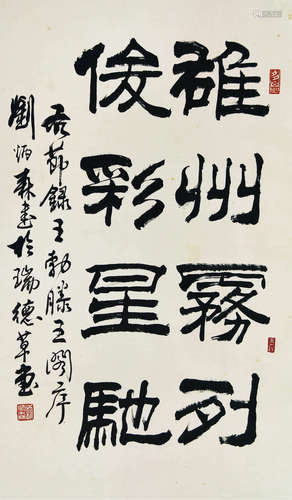 雄州霧列
俊彩星馳
右節録王勃滕王閣序
劉炳森書於瑞德草堂